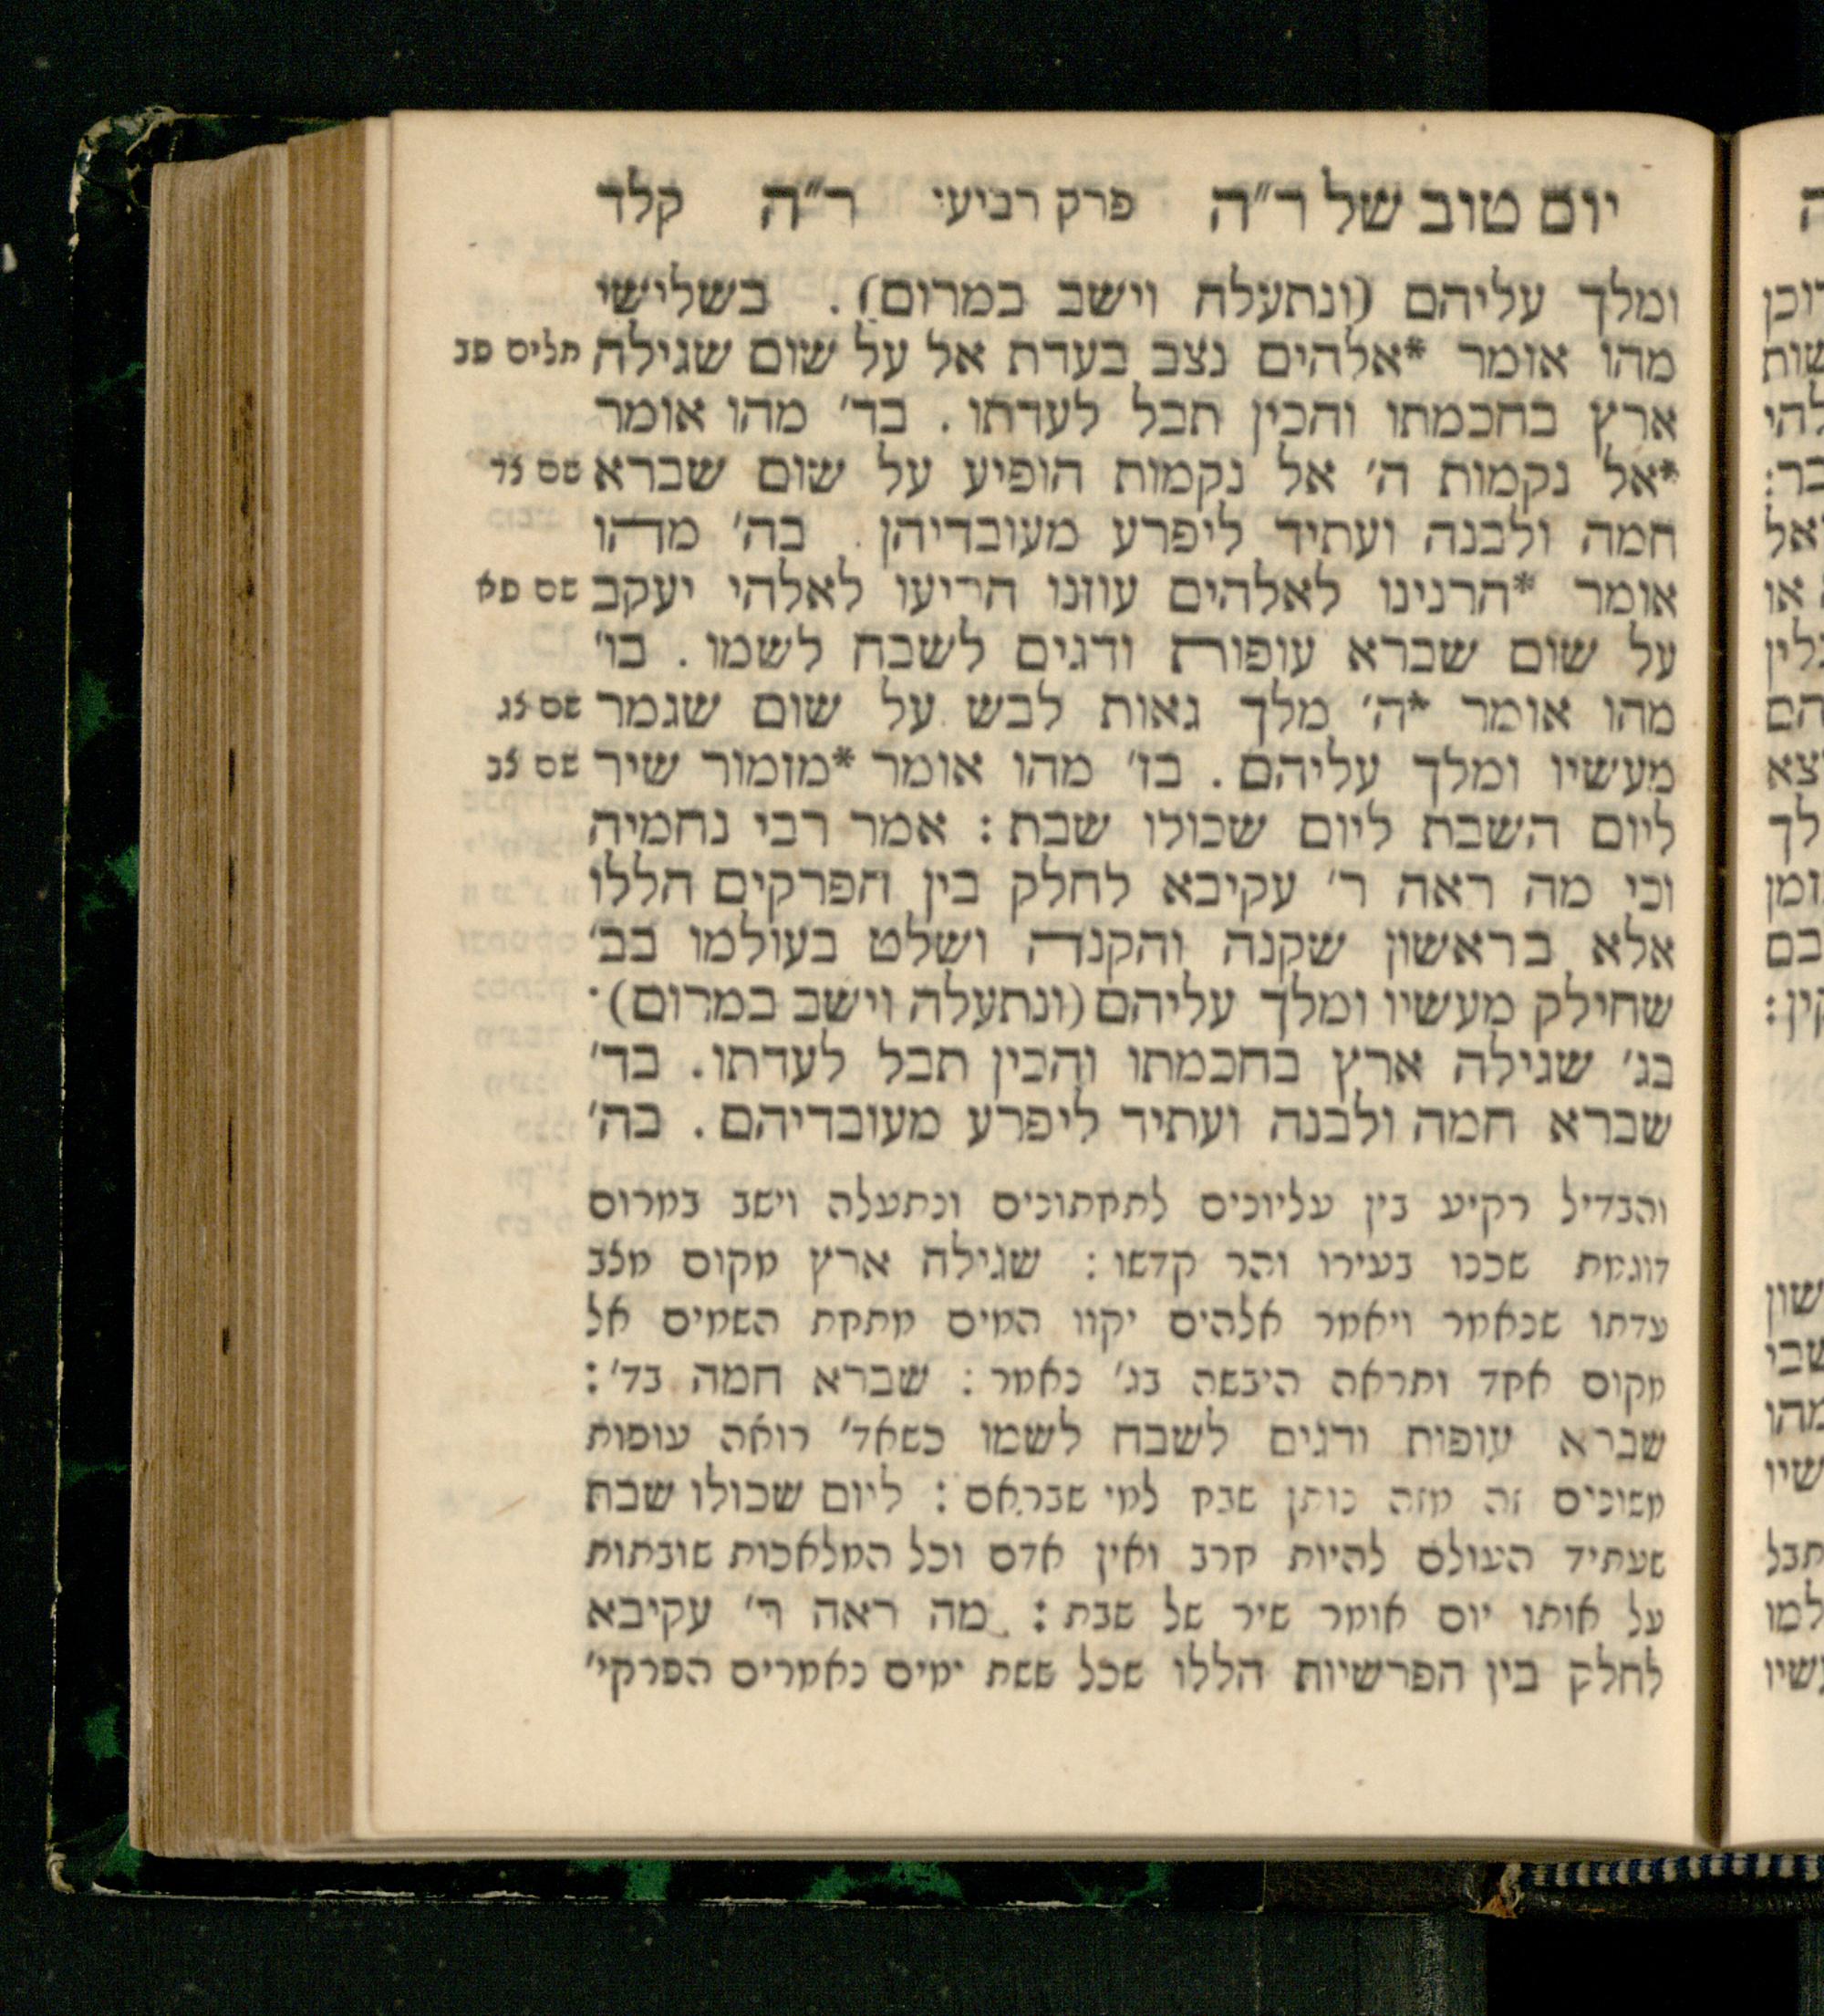 יום טוב של ר"ה פרק רביעי ר"ה קלד
ומלך עליהם (ונתעלה וישב במרום). בשלישי
מהו אומר *אלהים נצב בעדת אל על שום שגילה תלים פב
ארץ בחכמתו והכין תבל לעדתו. בד' מהו אומר
*אל נקמות ה' אל נקמות הופיע על שום שברא שם צד
חמה ולבנה ועתיד ליפרע מעובדיהן. בה' מהו
אומר *הרנינו לאלהים עוזנו הריעו לאלהי יעקב שם פא
על שום שברא עופות ודגים לשבח לשמו. בו'
מהו אומר *ה' מלך גאות לבש על שום שגמר שם צג
מעשיו ומלך עליהם. בז' מהו אומר *מזמור שיר שם צב
ליום השבת ליום שכולו שבת: אמר רבי נחמיה
וכי מה ראה ר' עקיבא לחלק בין הפרקים הללו
אלא בראשון שקנה והקנה ושלט בעולמו בב'
שחילק מעשיו ומלך עליהם (ונתעלה וישב במרום).
בג' שגילה ארץ בחכמתו והכין תבל לעדתו. בד'
שברא חמה ולבנה ועתיד ליפרע מעובדיהם. בה'
והבדיל רקיע בין עליונים לתחתונים ונתעלה וישב במרום
דוגמת שכנו בעירו והר קדשו: שגילה ארץ מקום מצב
עדתו שנאמר ויאמר אלהים יקוו המים מתחת השמים אל
מקום אחד ותראה היבשה בג' נאמר: שברא חמה בד':
שברא עופות ודגים לשבח לשמו כשאד' רואה עופות
משונים זה מזה נותן שבח למי שבראם: ליום שכולו שבת
שעתיד העולם להיות חרב ואין אדם וכל המלאכות שובתות
על אותו יום אומר שיר של שבת: מה ראה ר' עקיבא
לחלק בין הפרשיות הללו שכל ששת ימים נאמרים הפרקי'